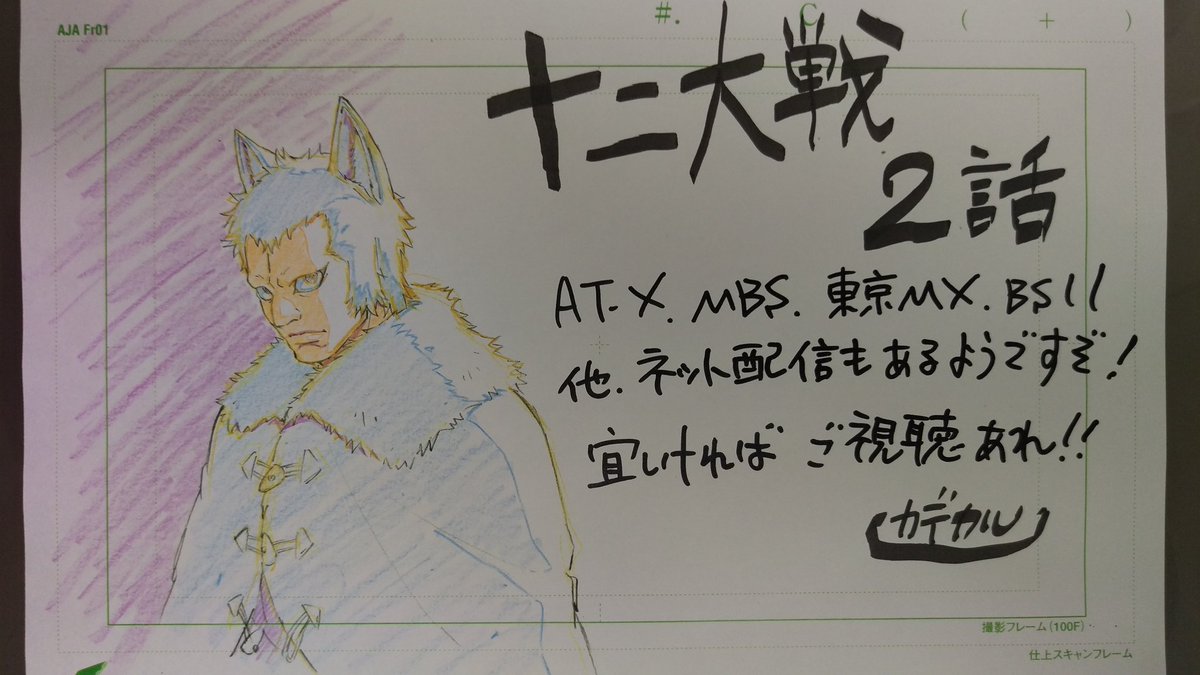 AJA Fr01
#. C ( + )
十二大戦
2話
AT-X. MBS. 東京MX. BS11
他、ネット配信もあるようですぞ!
宜しければ ご視聴あれ!!
カデカル
撮影フレーム(100F)
仕上スキャンフレーム